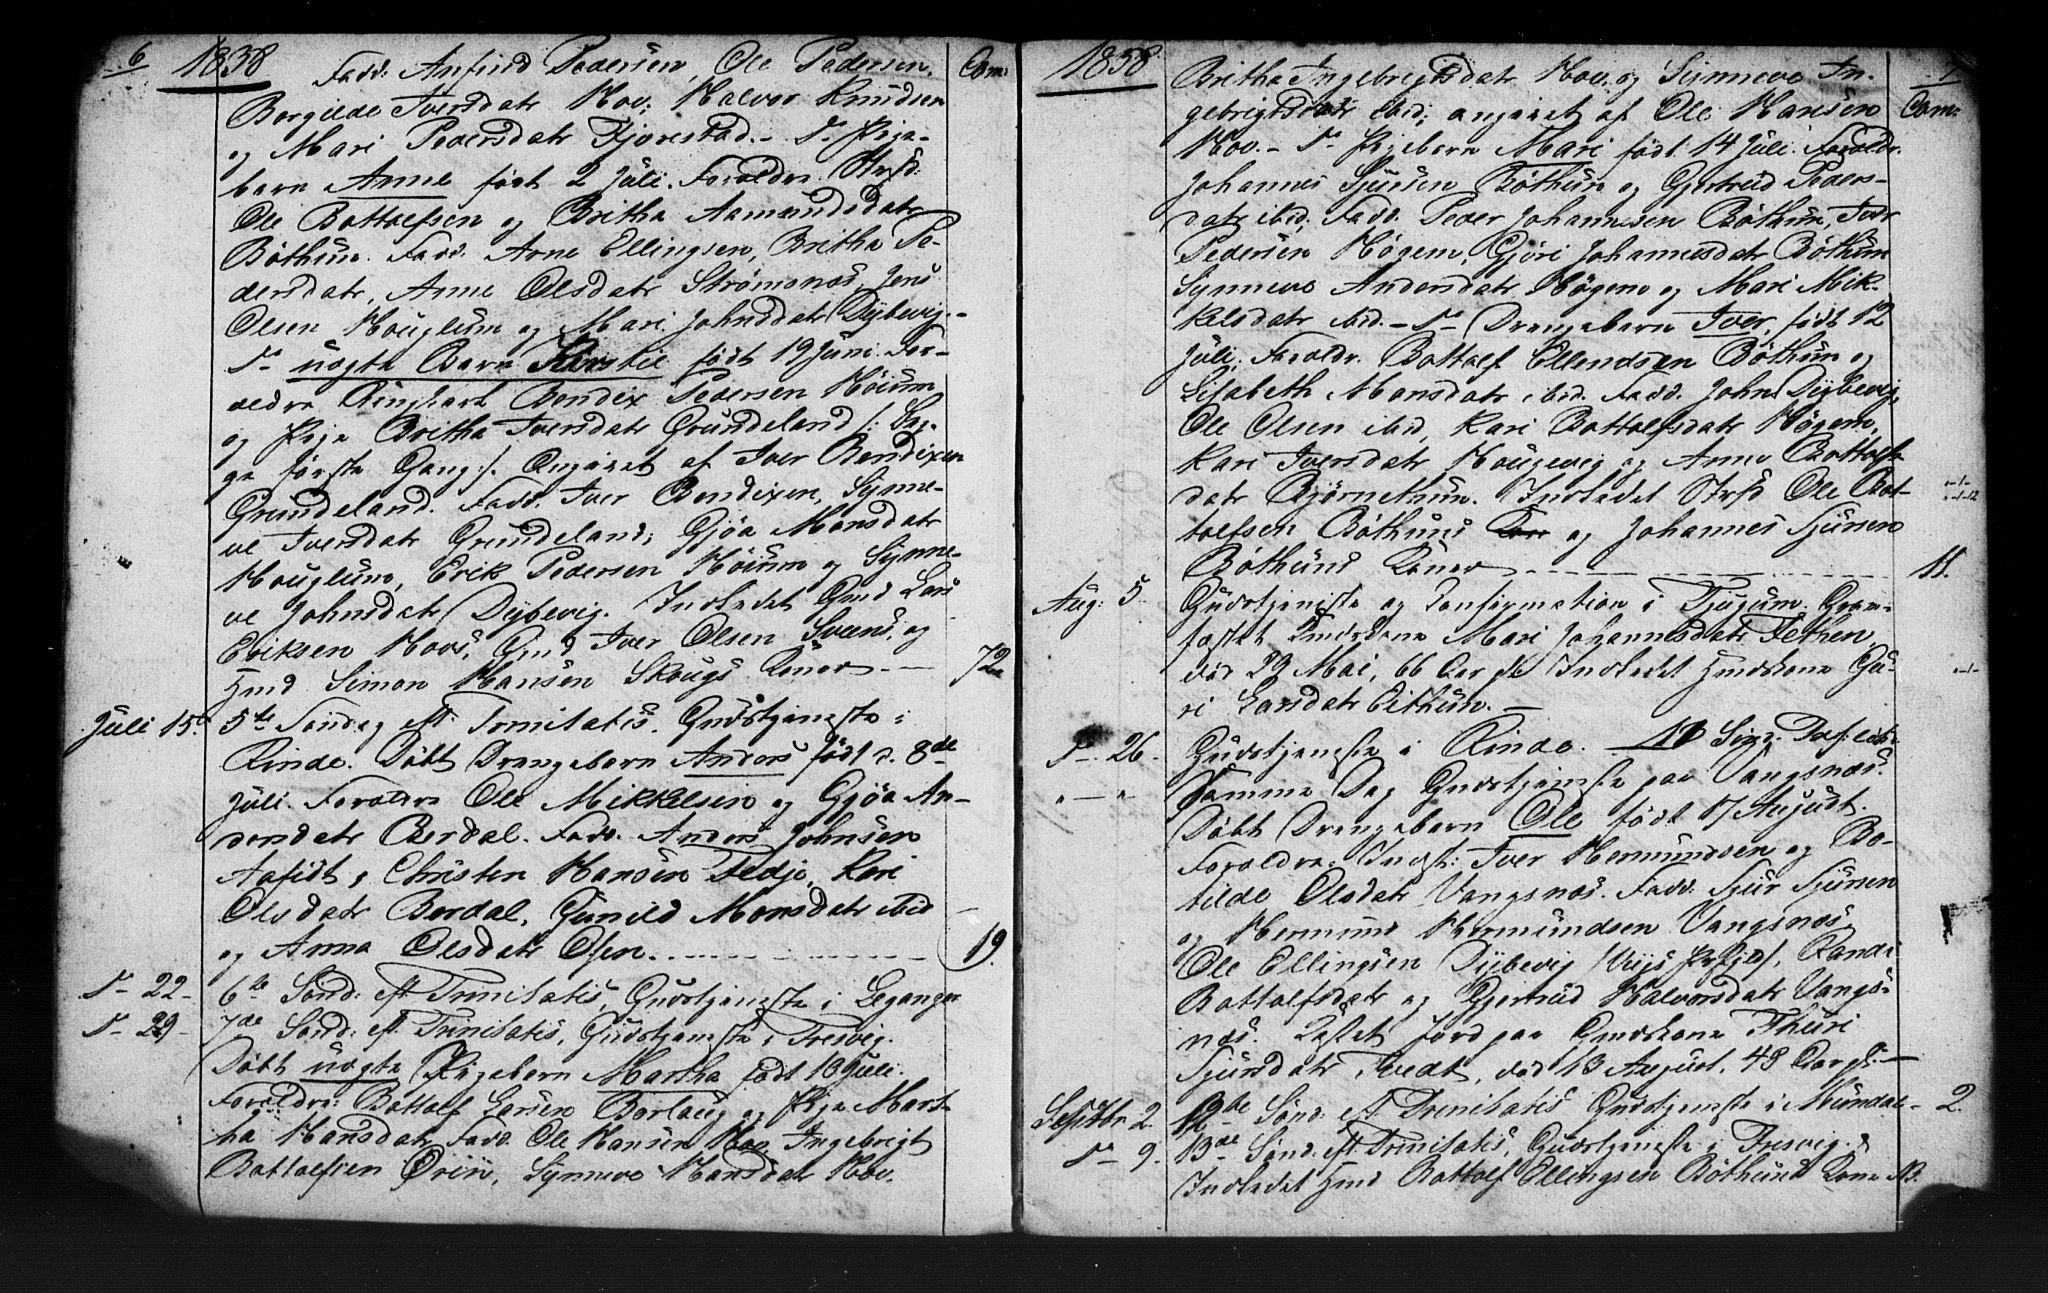 6
1838
Com:
Fadd: Anfind Pedersen, Ole Pedersen,
Borgilde Iversdatr Hov, Halvor Knudsen
og Mari Pedersdatr Fjørestad. – Do Pige-
barn Anne født 2 Juli. Forældre Strsd.
Ole Bottolfsen og Britha Aamundsdatr
Bøthun. Fadd. Arne Ellingsen, Britha Pe-
dersdatr, Anne Olsdatr Strømsnæs, Jens
Olsen Houglum og Mari Johnsdatr Dybevig. –
Do uægte Barn født 19 Juni. For-
ældre Ungkarl Bendix Pedersen Høium
og Pige Britha Iversdatr Grundeland /: Beg-
ge første Gang :/. Angivet af Iver Bendixen
Grundeland. Fadd. Iver Bendixen, Synne-
ve Iversdatr Grundeland, Gjøa Monsdatr
Houglum, Erik Pedersen Høium og Synne-
ve Johnsdatr Dybevig. Indledet Gmd Lars
Eriksen Hovs, Gmd Iver Olsen Svæns, og
Hmd Simon Hansen Skougs Koner –
72
Juli 15.
5te Søndag eft. Trinitatis. Gudstjeneste i
Rinde. Døbt Drengebarn Anders født d. 8de
Juli. Forældre Ole Mikkelsen og Gjøa An-
dersdatr Berdal. Fadd. Anders Johnsen
Aafedt, Christen Hansen Fedje, Kari
Olsdatr Berdal, Gunild Monsdatr ibid
og Anna Olsdatr Osen.
19.
Do 22
6te Sønd: eft Trinitatis, Gudstjeneste i Leganger
Do 29
7de Sønd: eft. Trinitatis, Gudstjeneste i Fresvig.
Døbt uægte Pigebarn Martha født 10 Juli.
Forældre: Bottolf Larsen Borlaug og Pige Mart-
ha Hansdatr. Fadd. Ole Hansen Hov Ingebrigt
Bottolfsen Ørin, Synneve Hansdatr Hov.
1838
7
Com:
Britha Ingebrigtsdatr Hov, og Synneve In-
gebrigtsdatr ibid; angivet af Ole Hansen
Hov. – Do Pigebarn Mari født 14 Juli. Forældr.
Johannes Sjursen Bøthun og Gjertrud Peders-
datr ibid, Fadd. Peder Johannesen Bøthun, Iver
Pedersen Høgem, Gjøri Johannesdatr Bøthun
Synneve Andersdatr Høgem og Mari Mik-
kelsdatr ibid. – Do Drengebarn Iver, født 12
Juli. Forældr. Bottolf Ellendsen Bøthun og
Lisabeth Mansdatr ibid. Fadd. John Dybevig,
Ole Olsen ibid, Kari Bottolfsdatr Høgem,
Kari Iversdatr Hougevig og Anne Bottolfs-
datr Bjørnethun. Indledet Strsd Ole Bot-
tolfsen Bøthuns og Johannes Sjursen
Bøthuns Koner
11.
Aug: 5.
Gudstjeneste og Confirmation i Tjugum. Gram-
fæstet Gmdskone Mari Johannesdatr Tethen,
død 29 Mai, 66 Aar gl. Indledet Hmdskone Gu-
ri Larsdatr Eithun. –
Do 26.
Gudstjeneste i Rinde.
" – "
Samme Dag Gudstjeneste paa Vangsnæs.
Døbt Drengebarn Ole født 17 August.
Forældre: Indst: Iver Hermundsen og Bo-
tilde Olsdatr Vangsnæs. Fadd. Sjur Sjursen
og Hermund Hermundsen Vangsnæs,
Ole Ellingsen Dybevig Randi
Bottolfsdatr og Gjertrud Halvorsdatr Vangs-
næs. Kastet Jord paa Gmdskone Thuri
Sjursdatr Tvedt, død 13 August, 48 Aar gl. –
Septbr 2.
12te Sønd: eft Trinitatis Gudstjeneste i Mundal –
2.
Do 9.
13de Sønd: eft Trinitatis, Gudstjeneste i Fresvig.
Indledet Hmd Bottolf Ellingsen Bøthuns Kone
13.